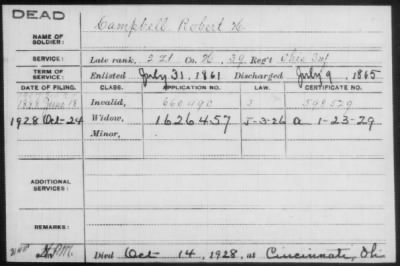 DEAD
Campbell Robert H
NAME OF SOLDIER:
SERVICE: Late rank, 2 Lt Co. K, 39 Reg't Ohio Inf
TERM OF SERVICE: Enlisted July 31, 1861 Discharged July 9, 1865
DATE OF FILING. CLASS. APPLICATION NO. LAW. CERTIFICATE NO.
1888 June 18 Invalid, 660490 598529
1928 Oct-24 Widow, 1626457 5-3-26 a 1-23-29
Minor,
ADDITIONAL SERVICES:
REMARKS:
Died Oct 14, 1928, at Cincinnati, Ohi